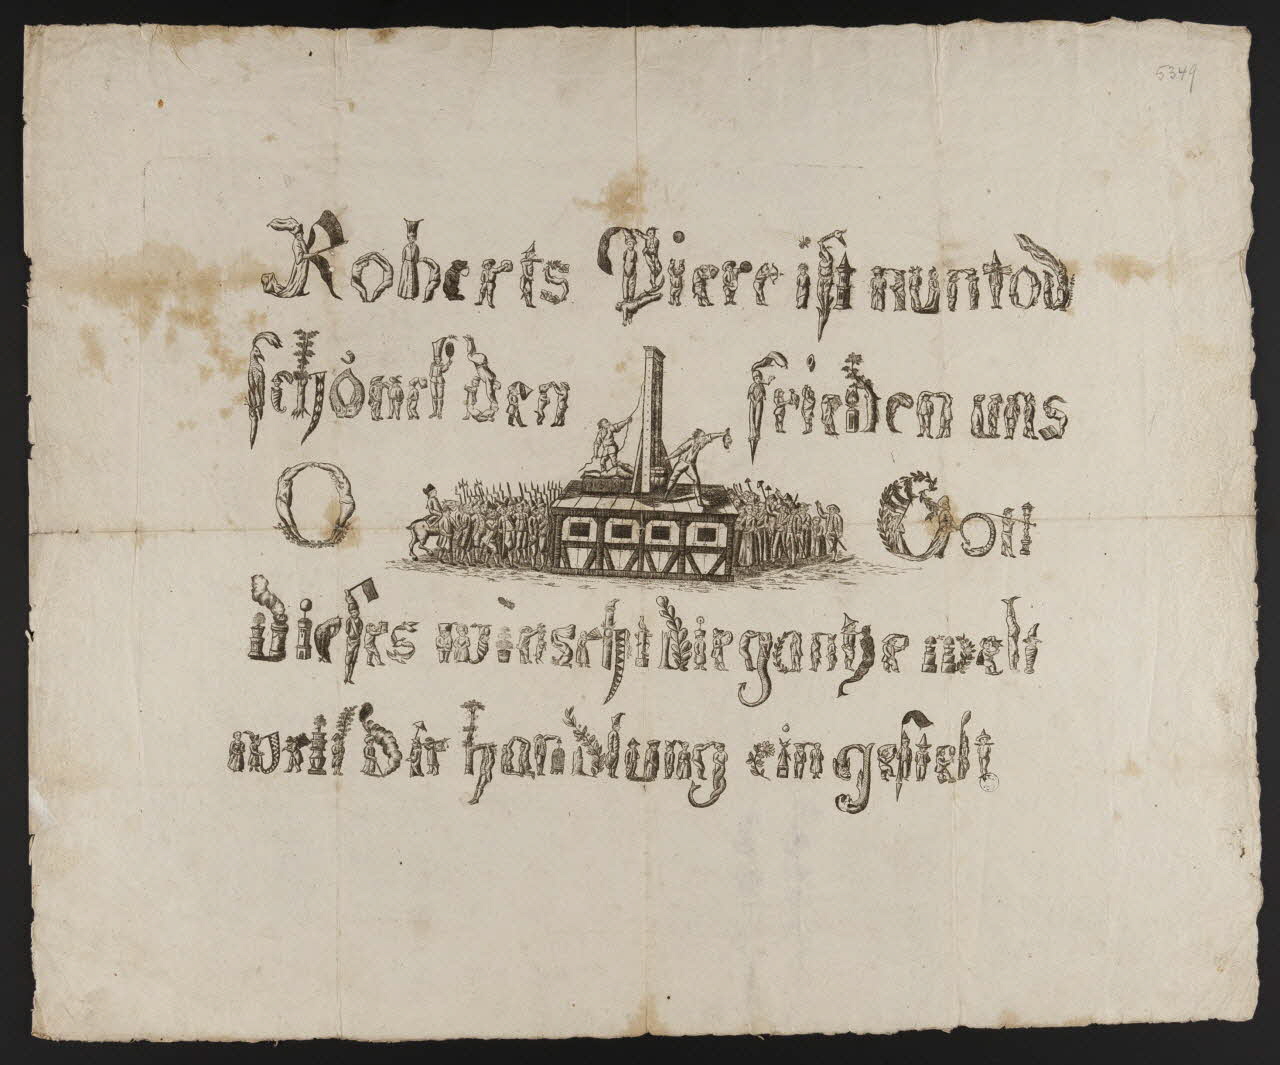 5349
Roberts Pierre ist nun tod
schönst den frieden uns
O Gott
Dieses winscht die gantze welt
weil die handlung ein gestelt